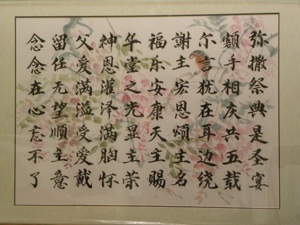 弥撒祭典是圣宴
额手相庆共五载
尔言犹在耳边绕
谢主宏恩颂主名
福乐安康天主赐
华堂之光显主荣
神恩灌泽满胸怀
父爱满溢受爱戴
留任无望顺主意
念念在心忘不了